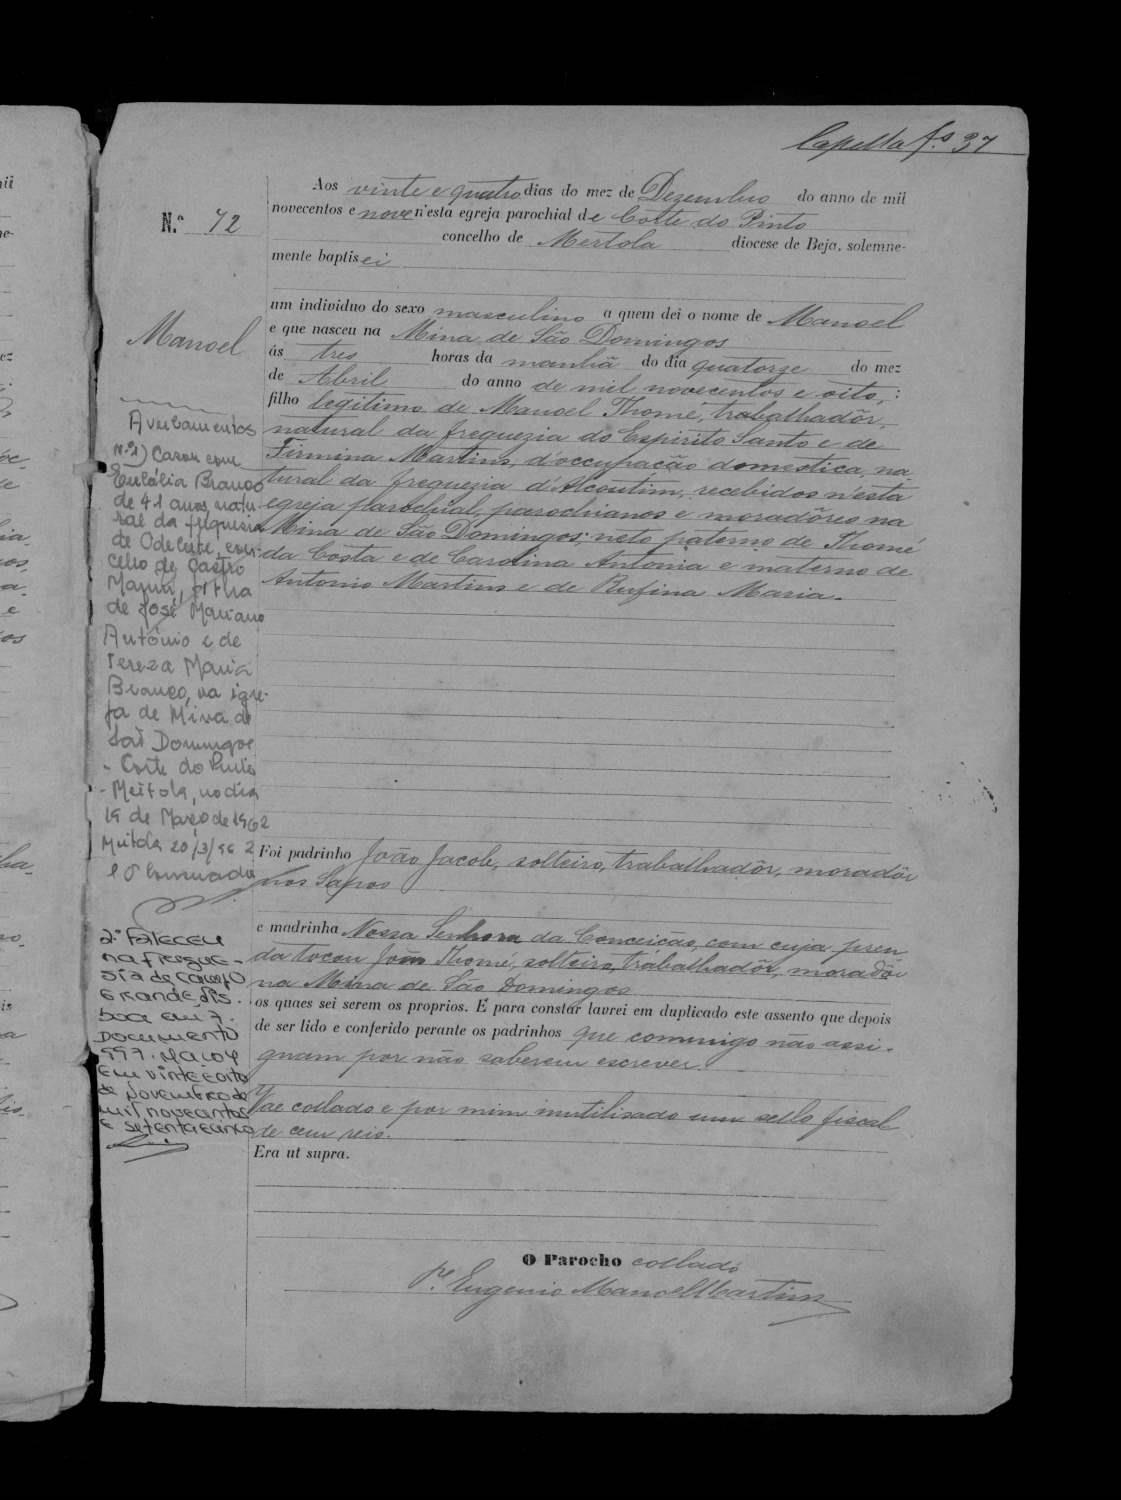 Capella f.s 37
Aos vinte e quatro dias do mez de Dezembro do anno de mil
novecentos e nove n'esta egreja parochial de Corte do Pinto
N.º 72
concelho de Mertola diocese de Beja, solemne-
mente baptisei
um individuo do sexo masculino a quem dei o nome de Manoel
e que nasceu na Mina de São Domingos
Manoel
ás tres horas da manhã do dia quatorze do mez
de Abril do anno de mil novecentos e oito,:
filho legitimo de Manoel Thomé, trabalhadôr,
natural da freguezia do Espirito Santo e de
Firmina Martins, d'occupação domestica, na
tural da freguezia d'Alcoutim, recebidos n'esta
egreja parochial, parochianos e moradôres na
Mina de São Domingos; neto paterno de Thomé
da Costa e de Carolina Antonia e materno de
Antonio Martins e de Rufina Maria.
Averbamentos
nº1) Casou com
Eulália Branco
de 41 anos, natu
ral da freguesia
de Odeleite, con-
celho de Castro
Marim, filha
de José Mariano
António e de
Tereza Maria
Branco, na igre-
ja de Mina de
São Domingos
- Corte do Pinto
- Mértola, no dia
19 de Março de 1962
Mértola 20/3/962
Foi padrinho João Jacob, solteiro, trabalhadôr, moradôr
nos Sapos
e madrinha Nossa Senhora da Conceição, com cuja pren
da tocou João Thomé, solteiro, trabalhadôr, moradôr
na Mina de São Domingos
os quaes sei serem os proprios. E para constar lavrei em duplicado este assento que depois
de ser lido e conferido perante os padrinhos que commigo não assi-
gnam por não saberem escrever.
Vae collado e por mim inutilisado um sello fiscal
de cem reis.
Era ut supra.
2.º Faleceu
na fregue-
sia de Campo
Grande, Lis-
boa em 7.
Documento
997. Maço 4
em vinte e oito
de Novembro de
mil novecentos
e setenta e cinco
O Parocho collado
P.e Eugenio Manoel Martins